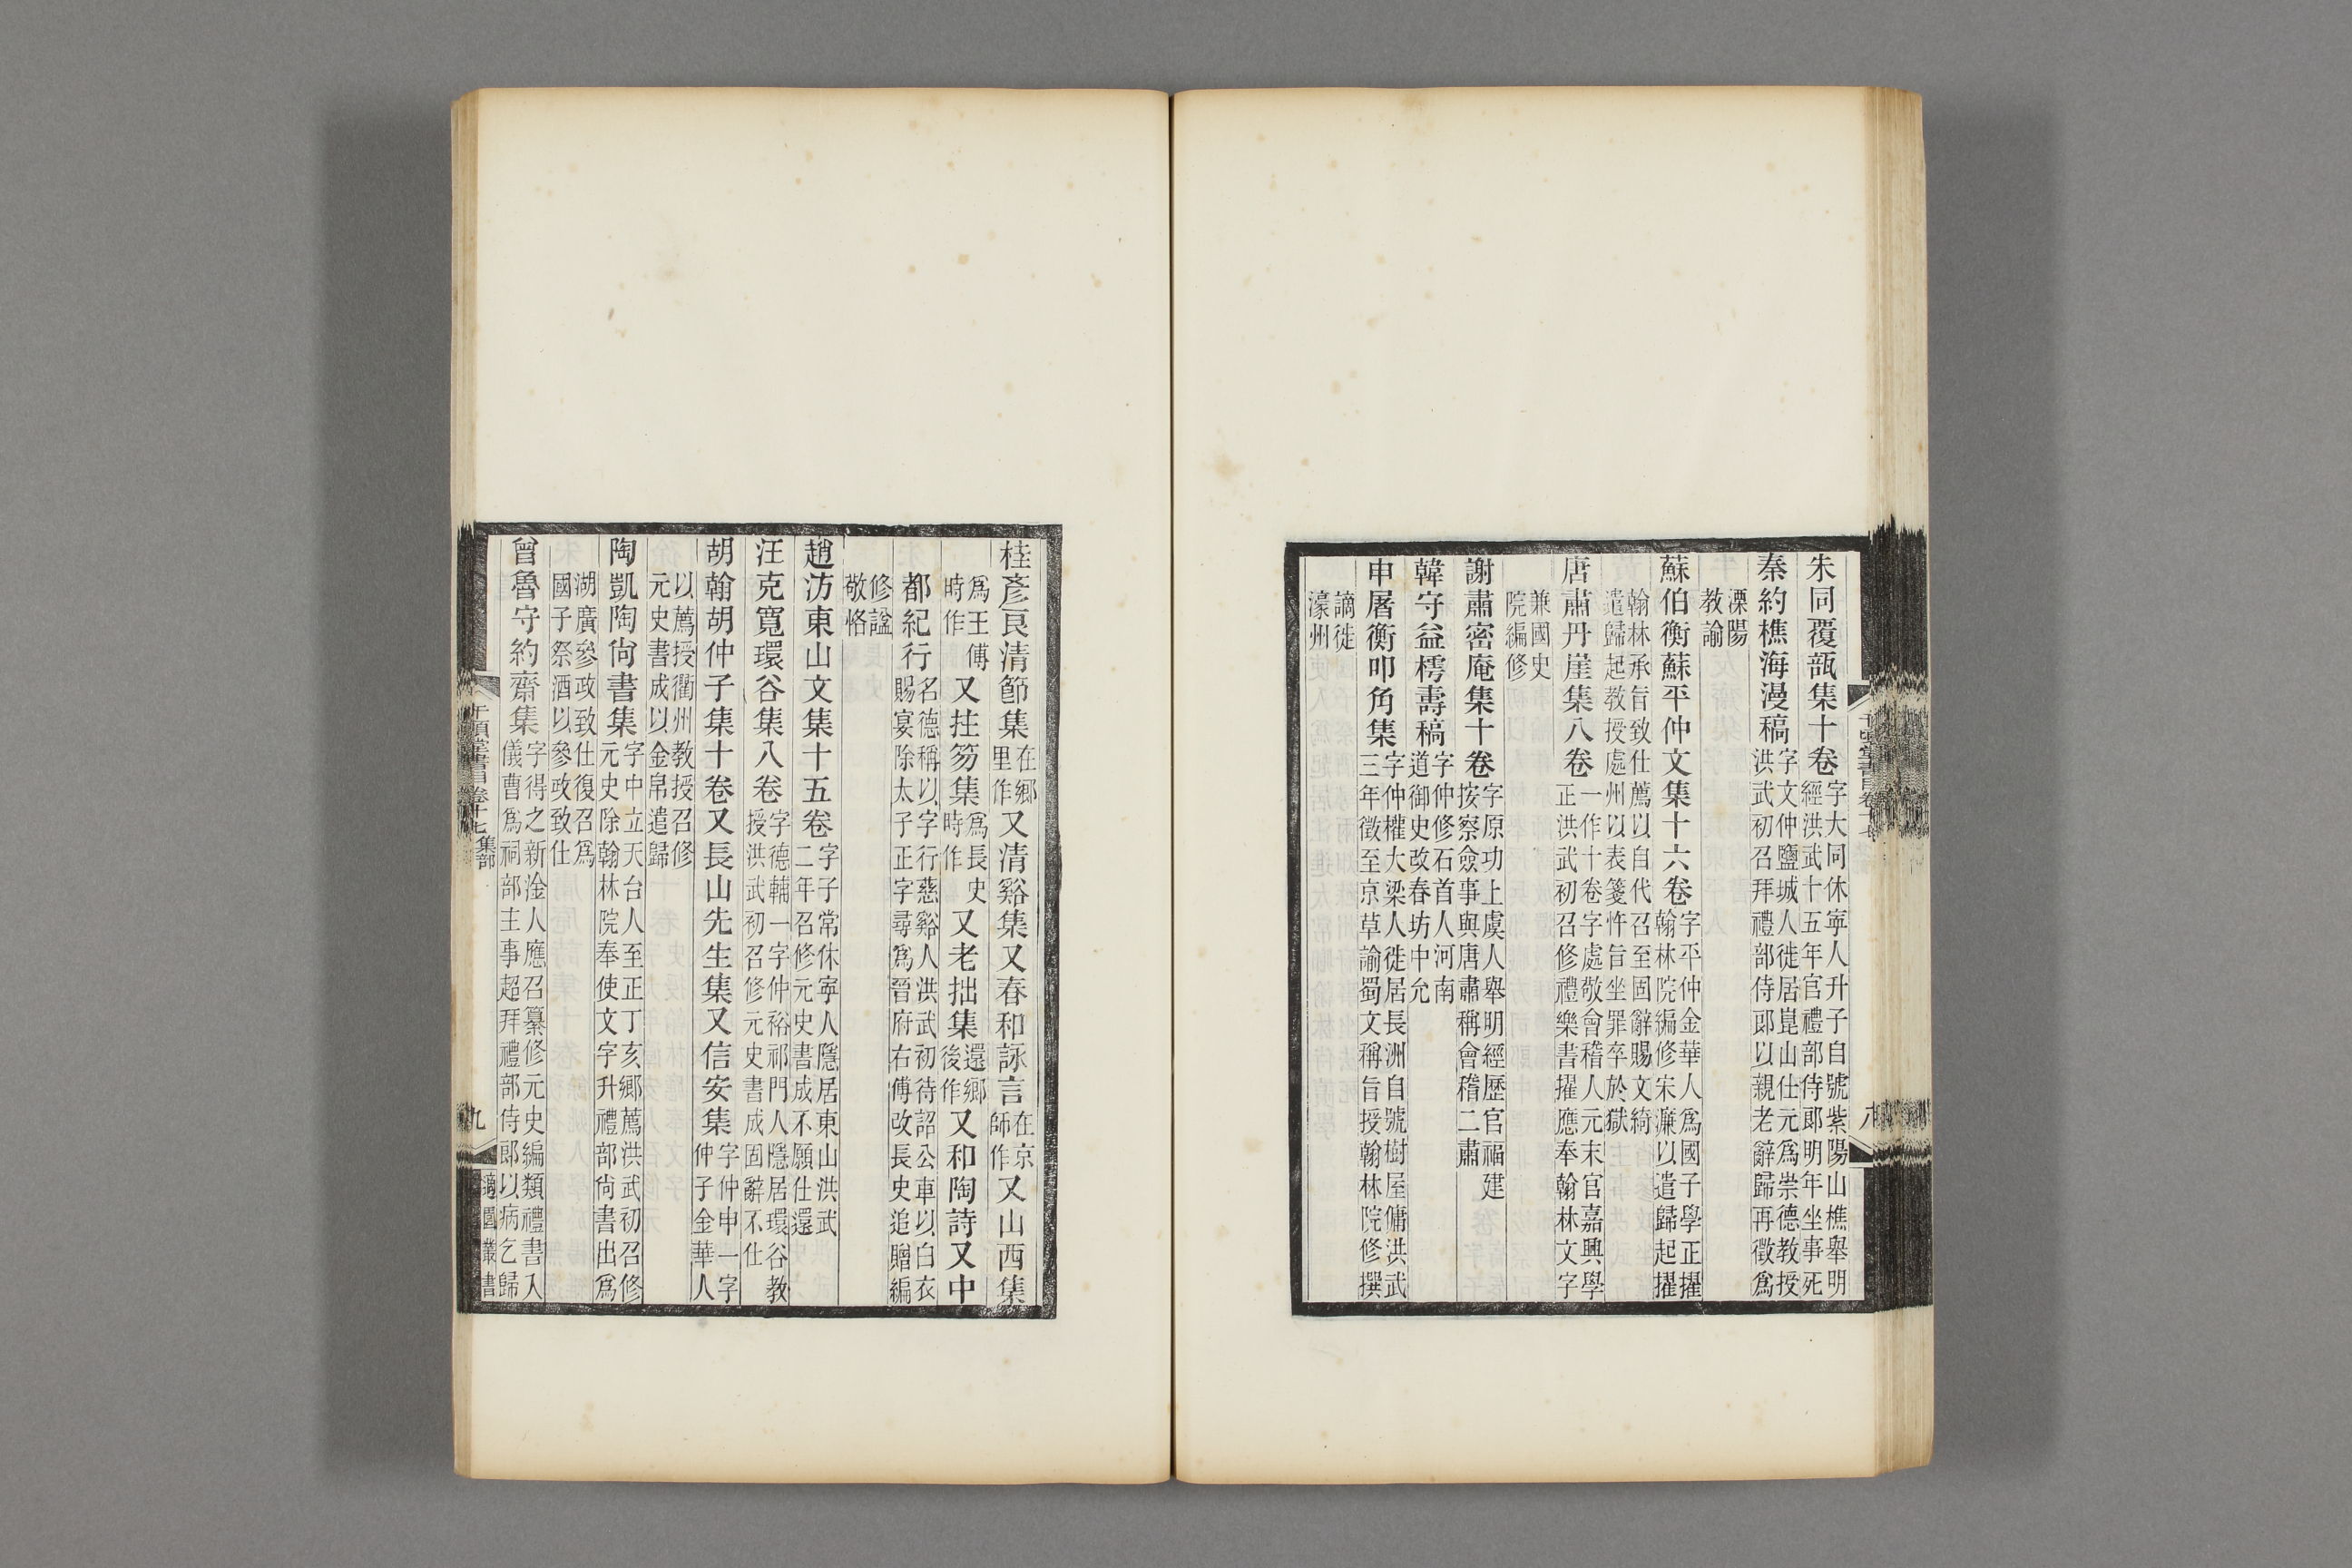 朱同覆瓿集十卷字大同休寧人升子自號紫陽山樵舉明
經洪武十五年官禮部侍郎明年坐事死
秦約樵海漫稿字文仲鹽城人徙居崑山仕元爲崇德教授
洪武初召拜禮部侍郎以親老辭歸再徵爲
溧陽
教諭
蘇伯衡蘇平仲文集十六卷字平仲金華人爲國子學正擢
翰林院編修宋濂以遣歸起擢
翰林承旨致仕薦以自代召至固辭賜文綺
遣歸起教授處州以表箋忤旨坐罪卒於獄
唐肅丹崖集八卷一作十卷字處敬會稽人元末官嘉興學
正洪武初召修禮樂書擢應奉翰林文字
兼國史
院編修
謝肅密庵集十卷字原功上虞人舉明經歷官福建
按察僉事與唐肅稱會稽二肅
韓守益樗壽稿字仲修石首人河南
道御史改春坊中允
申屠衡叩角集字仲權大梁人徙居長洲自號樹屋傭洪武
三年徵至京草諭蜀文稱旨授翰林院修撰
謫徙
濠州
千頃堂書目卷十七
八
桂彥良清節集在鄉
里作又清谿集又春和詠言在京
師作又山西集
爲王傅
時作又拄笏集爲長史
時作又老拙集還鄉
後作又和陶詩又中
都紀行名德稱以字行慈谿人洪武初待詔公車以白衣
賜宴除太子正字尋爲晉府右傅改長史追贈編
修諡
敬恪
趙汸東山文集十五卷字子常休寧人隱居東山洪武
二年召修元史書成不願仕還
汪克寬環谷集八卷字德輔一字仲裕祁門人隱居環谷教
授洪武初召修元史書成固辭不仕
胡翰胡仲子集十卷又長山先生集又信安集字仲申一字
仲子金華人
以薦授衢州教授召修
元史書成以金帛遣歸
陶凱陶尙書集字中立天台人至正丁亥鄉薦洪武初召修
元史除翰林院奉使文字升禮部尙書出爲
湖廣參政致仕復召爲
國子祭酒以參政致仕
曾魯守約齋集字得之新淦人應召纂修元史編類禮書入
儀曹爲祠部主事超拜禮部侍郎以病乞歸
千頃堂書目卷十七集部
九
適園叢書